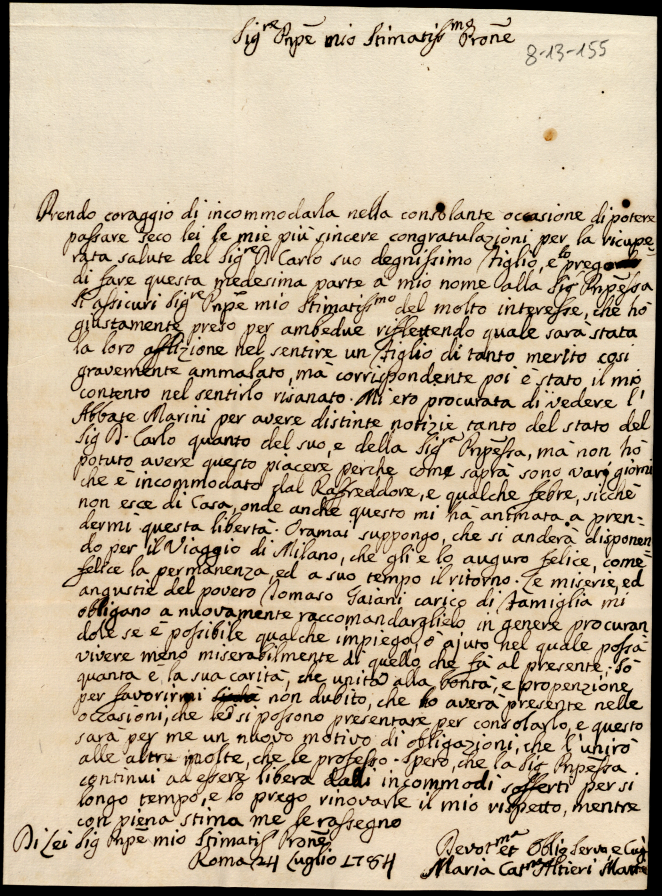 Sig.re Pnpe mio Stimatiss.mo Prone
8-13-155
Prendo coraggio di incommodarla nella consolante occasione di potere
passare seco lei le mie più sincere congratulazioni per la ricupe-
rata salute del Sig.re D. Carlo suo degnissimo Figlio, e lo prego
di fare questa medesima parte a mio nome alla Sig.ra Pnpessa
Si assicuri Sig.re Pnpe mio Stimatiss.mo del molto interesse, che hò
giustamente preso per ambedue riflettendo quale sarà stata
la loro afflizione nel sentire un Figlio di tanto merito così
gravemente ammalato, mà corrispondente poi è stato il mio
contento nel sentirlo risanato. Mi ero procurata di vedere l'
Abbate Marini per avere distinte notizie tanto del stato del
Sig. D. Carlo quanto del suo, e della Sig.ra Pnpessa, mà non hò
potuto avere questo piacere perche come saprà sono varij giorni
che è incommodato dal Raffreddore, e qualche febre, sicchè
non esce di Casa, onde anche questo mi hà animata a pren-
dermi questa libertà. Oramai suppongo, che si anderà disponen-
do per il Viaggio di Milano, che gli e lo auguro felice, come
felice la permanenza ed a suo tempo il ritorno. Le miserie, ed
angustie del povero Tomaso Gaiani carico di Famiglia mi
obligano a nuovamente raccomandarglielo in genere procuran
dole se è possibile qualche impiego, ò ajuto nel quale possa
vivere meno miserabilmente di quello, che fà al presente. Sò
quanta è la sua carità, che unita alla bontà, e propenzione
per favorirmi non dubito, che lo averà presente nelle
occasioni, che si possono presentare per consolarlo, e questo
sarà per me un nuovo motivo di obligazioni, che l'unirò
alle altre molte, che le professo. Spero, che la Sig. Pnpessa
continui ad essere libera dalli incommodi sofferti per si
longo tempo, e lo prego rinovarle il mio rispetto, mentre
con piena stima me le rassegno
Di Lei Sig Pnpe mio Stimatiss Prone
Roma 24 Luglio 1784
Devot.ma et Oblig Serva e Cug
Maria Cat.na Altieri